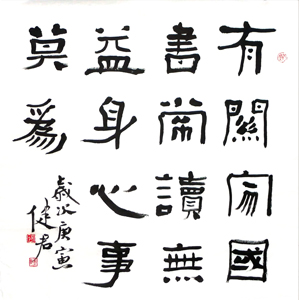 有關家國
書常讀無
益身心事
莫爲
歲次庚寅